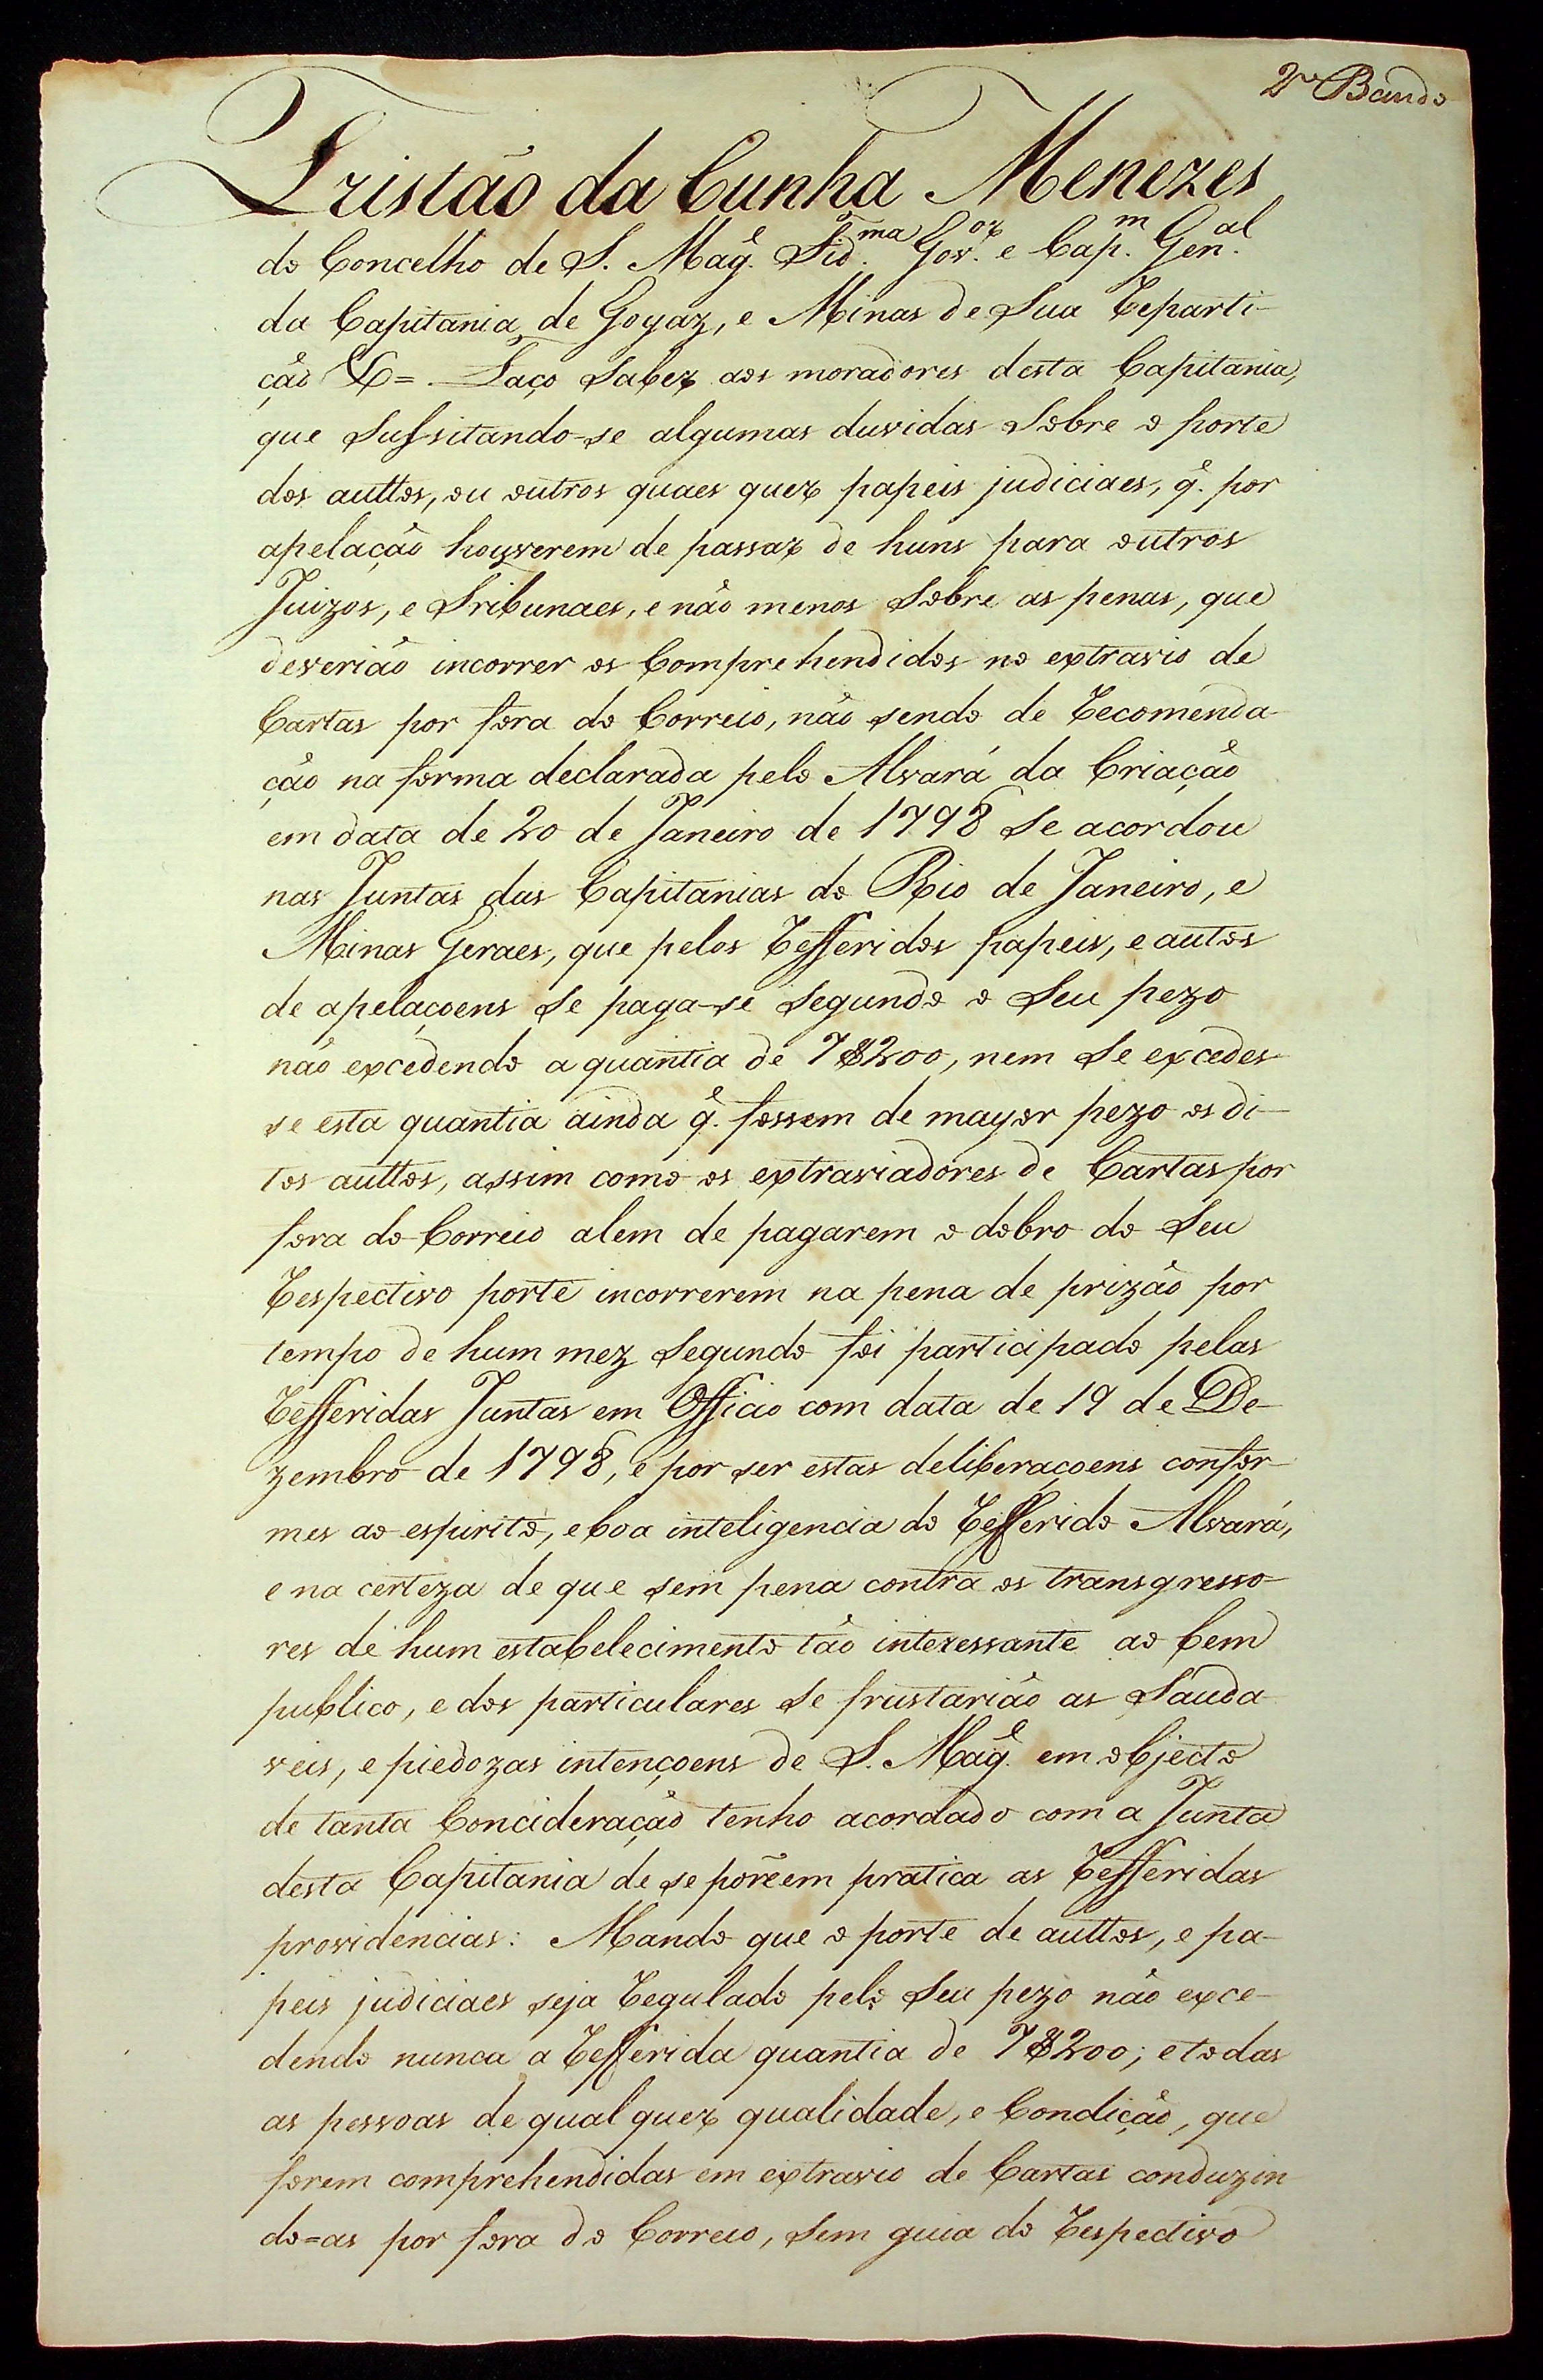 2º Bando
Tristão da Cunha Menezes
do Concelho de S. Magᵉ. Fidᵐᵃ. Govᵒʳ. e Capᵐ. Genᵃˡ.
da Capitania de Goyaz, e Minas de Sua Reparti-
ção &= Faço Saber aos moradores desta Capitania,
que Sussitando-se algumas duvidas Sobre o porte
dos auttos, ou outros quaes quer papeis judiciaes, q̃. por
apelação houverem de passar de huns para outros
Juizos, e Tribunaes, e não menos Sobre as penas, que
deverião incorrer os Comprehendidos no extravio de
Cartas por fora do Correio, não sendo de Recomenda-
ção na forma declarada pelo Alvará da Criação
em data de 20 de Janeiro de 1798 Se acordou
nas Juntas das Capitanias do Rio de Janeiro, e
Minas Geraes, que pelos Refferidos papeis, e autos
de apelaçoens Se paga-se Segundo o Seu pezo
não excedendo a quantia de 7$200, nem Se excedes-
se esta quantia ainda q̃. fossem de mayor pezo os di-
tos auttos, assim como os extraviadores de Cartas por
fora do Correio alem de pagarem o dobro do Seu
Respectivo porte incorrerem na pena de prizão por
tempo de hum mez Segundo foi participado pelas
Refferidas Juntas em Officio com data de 19 de De-
zembro de 1798, e por ser estas deliberaçoens confor-
mes ao espirito, e boa inteligencia do Refferido Alvará,
e na certeza de que sem pena contra os transgresso-
res de hum estabelecimento tão interessante ao bem
publico, e dos particulares Se frustarião as Sauda-
veis, e piedozas intençoens de S. Magᵉ. em objecto
de tanta Concideração tenho acordado com a Junta
desta Capitania de se porẽem pratica as Refferidas
providencias: Mando que o porte de auttos, e pa-
peis judiciaes seja Regulado pelo Seu pezo não exce-
dendo nunca a Refferida quantia de 7$200; e todas
as pessoas de qual quer qualidade, e Condição, que
forem comprehendidas em extravio de Cartas conduzin
do=as por fora do Correio, Sem guia do Respectivo